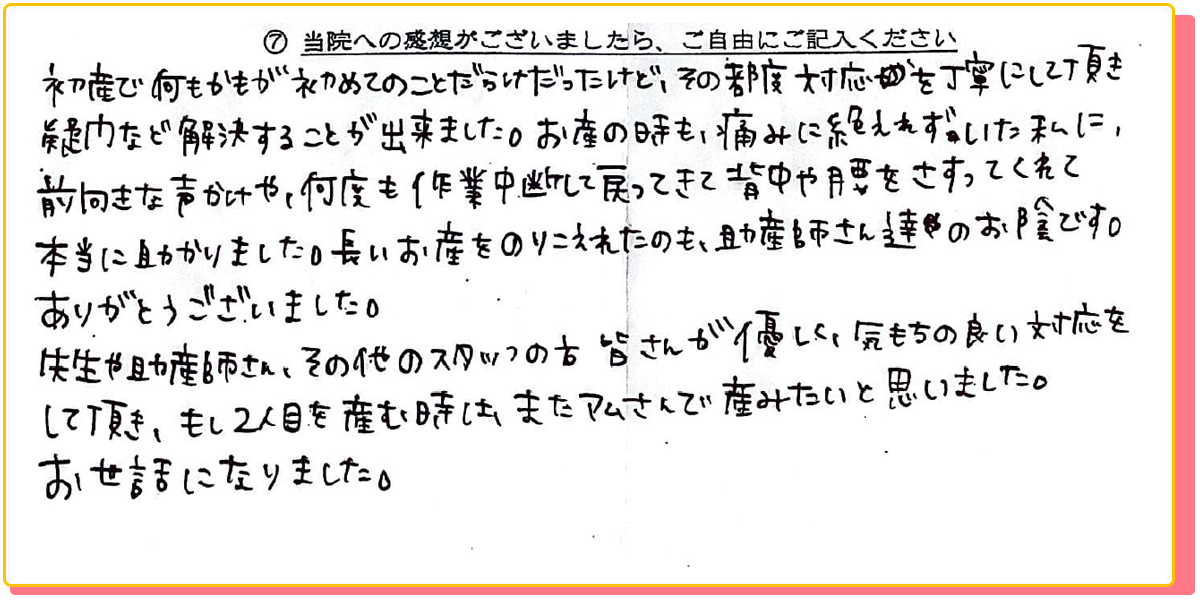 ⑦ 当院への感想がございましたら、ご自由にご記入ください
初産で何もかもが初めてのことだらけだったけど、その都度対応を丁寧にして頂き
疑問など解決することが出来ました。お産の時も、痛みに絶えれずいた私に、
前向きな声かけや、何度も作業中断して戻ってきて背中や腰をさすってくれて
本当に助かりました。長いお産をのりこえれたのも、助産師さん達のお陰です。
ありがとうございました。
先生や助産師さん、その他のスタッフの方皆さんが優しく、気もちの良い対応を
して頂き、もし2人目を産む時は、またアムさんで産みたいと思いました。
お世話になりました。